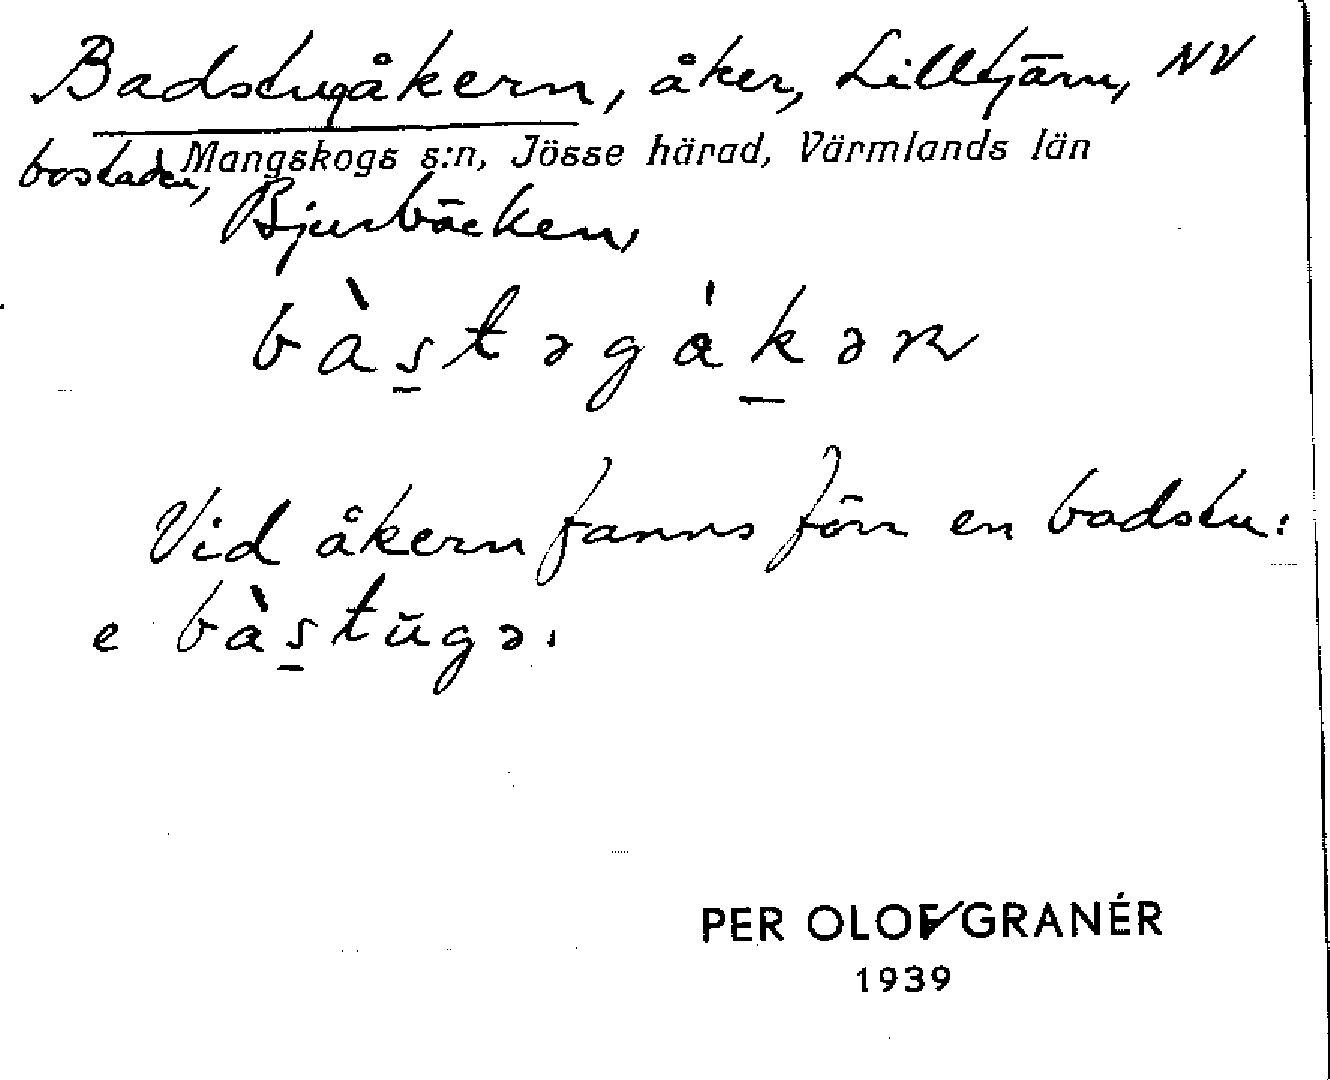 Badstugåkern, åker, Lilltjärn, NV
Mangskogs s:n, Jösse härad, Värmlands län
bostaden, Bjurbäcken,
bàs̲təgák̲ər
Vid åkern fanns förr en badstu:
e bàs̲tŭgə.
PER OLOF GRANÉR
1939